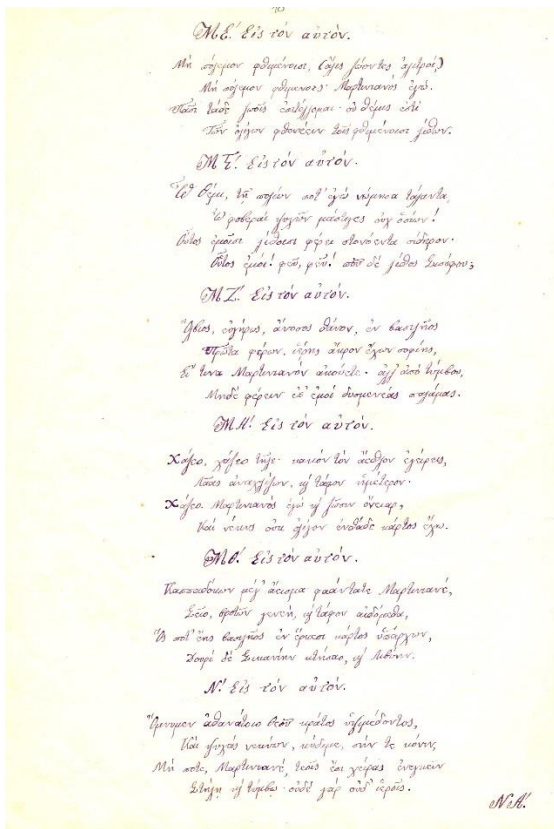 10
ΜΕ΄. Εἰς τόν αὐτόν.
Μή πόλεμον φθιμένοισι, (ἅλις ζώοντες ἀλιτροί,)
Μή πόλεμον φθιμένοισι· Μαρτινιανός ἐγώ.
Πᾶσι τάδε ζωοῖς ἐπιτέλλομαι· οὐ θέμις ἐστί
Τῶν ὀλίγων φθονέειν τοῖς φθιμένοισι λίθων.
Μς΄. Εἰς τόν αὐτόν.
Ὦ Θέμι, τῇ πολλῶν ποτ' ἐγώ νώμησα τάλαντα,
Ὦ φοβεραί ψυχῶν μάστιγες οὐχ ὁσίων!
Οὗτος ἐμοῖσι λίθοισι φέρει στονόεντα σίδηρον·
Οὗτος ἐμοί! φεῦ, φεῦ! ποῦ δέ λίθος Σισύφου;
ΜΖ΄. Εἰς τόν αὐτόν.
Ὄλβιος, εὐγήρως, ἄνοσος θάνον, ἐν βασιλῆος
Πρῶτα φέρων, ἱερῆς ἄκρον ἔχων σοφίης,
Εἴ τινα Μαρτινιανόν ἀκούετε· ἀλλ' ἀπό τύμβου,
Μηδέ φέρειν ἐπ' ἐμοί δυσμενέας παλάμας.
ΜΗ΄. Εἰς τόν αὐτόν.
Χάζεο, χάζεο τῆλε· κακόν τόν ἄεθλον ἐγείρεις,
Λᾶας ἀνοχλίζων, κ̀ τάφον ἡμέτερον·
Χάζεο. Μαρτινιανός ἐγώ κ̀ ζῶσιν ὄνειαρ,
Καί νέκυς οὐκ ὀλίγον ἐνθάδε κάρτος ἔχω.
ΜΘ΄. Εἰς τόν αὐτόν.
Καππαδόκων μέγ' ἄεισμα φαάντατε Μαρτινιανέ,
Σεῖο, βροτῶν γενεή, κ̀ τάφον αἰδόμεθα,
Ὅς ποτ' ἔης βασιλῆος ἐν ἕρκεσι κάρτος ὑπάρχων,
Δουρί δέ Σικανίην κτήσαο, κ̀ Λιβύην.
Ν΄. Εἰς τόν αὐτόν.
Ὄμνυμεν ἀθανάτοιο Θεοῦ κράτος ὑψιμέδοντος,
Καί ψυχάς νεκύων, κύδιμε, σήν τε κόνιν,
Μή ποτε, Μαρτινιανέ, τεοῖς ἐπί χεῖρας ἐνεγκεῖν
Στήλῃ κ̀ τύμβῳ· οὐδέ γάρ οὐδ' ἱεροῖς.
ΝΑ΄.